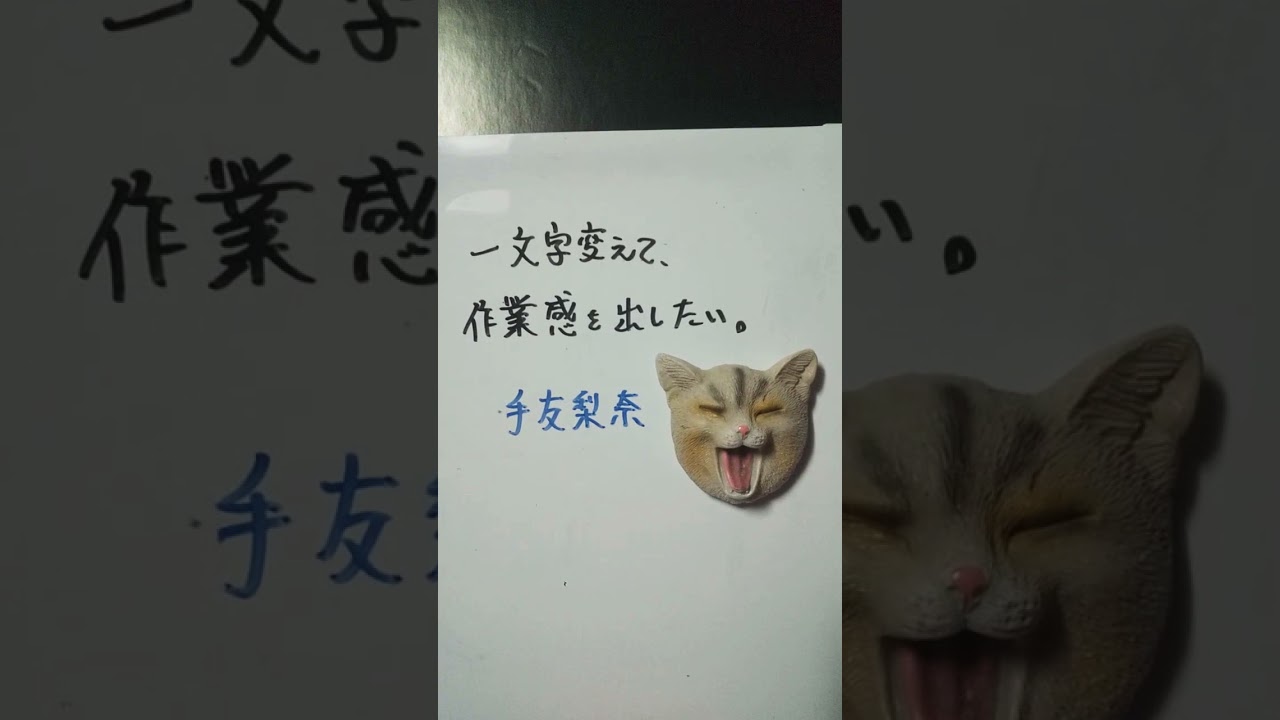 一文字変えて、
作業感を出したい。
手友梨奈